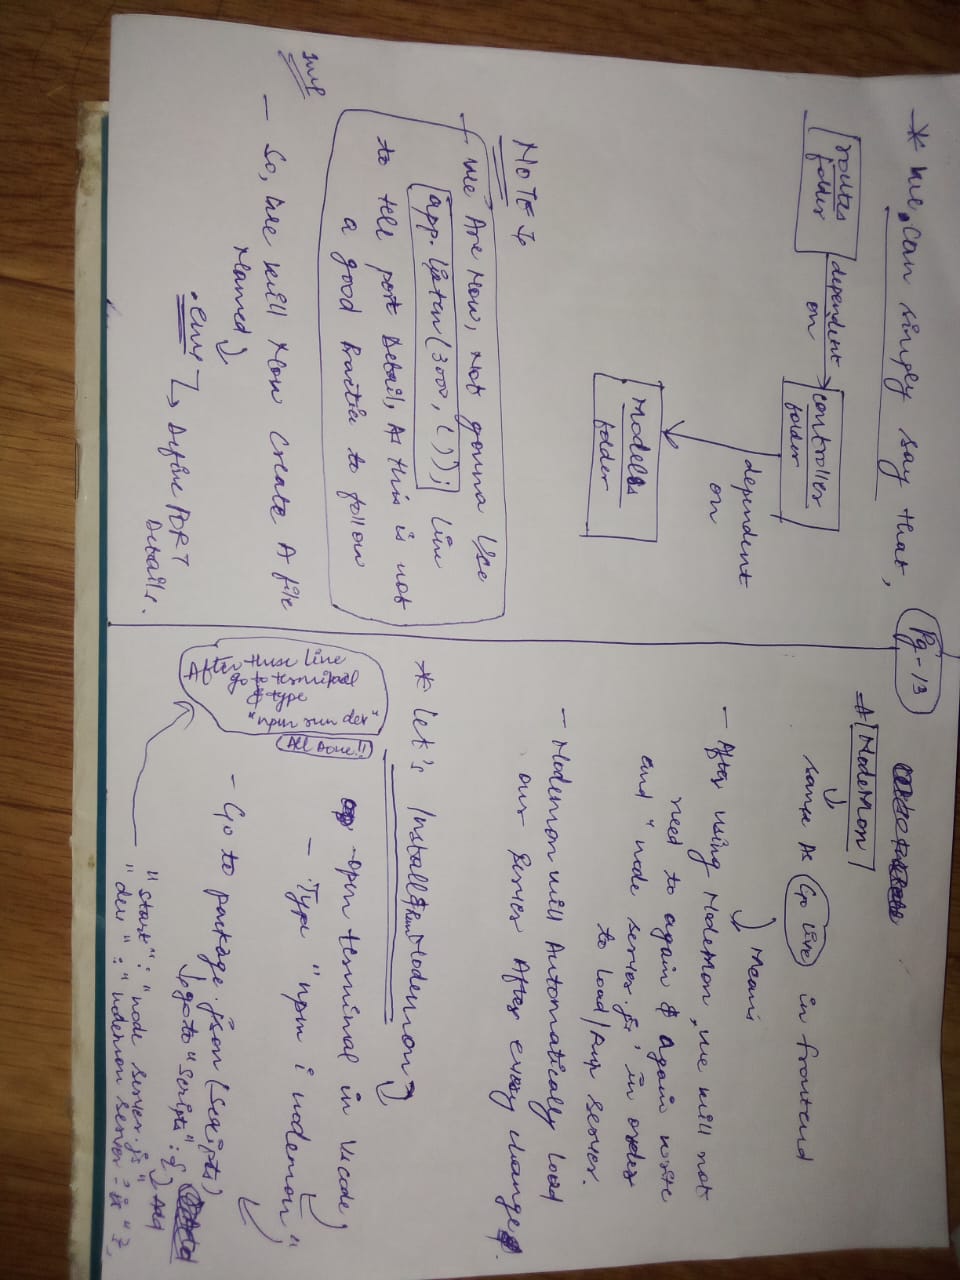 Pg-13
* We can simply say that,
routes
folder
dependent
on
controller
folder
dependent
on
Models
folder
NOTE :
- We Are Now, Not gonna Use
app.listen(3000, ()); line
to tell port Detail, As this is not
a good Practice to follow
Imp
- So, We will Now Create A file
Named
.env
Define PORT
Details.
* NodeMon
same As Go Live in frontend
Means
- After using NodeMon, we will not
need to again & Again write
and "node server.js" in order
to load/Run Server.
- Nodemon will Automatically load
our Server After every change.
* Let's Install & Run Nodemon
- Open terminal in Vscode
- Type "npm i nodemon"
- Go to package.json (Scripts)
go to "Scripts": {
Add
"start": "node server.js"
"dev": "nodemon server.js" },
After these line
go to terminal
& type
"npm run dev"
All Done!!